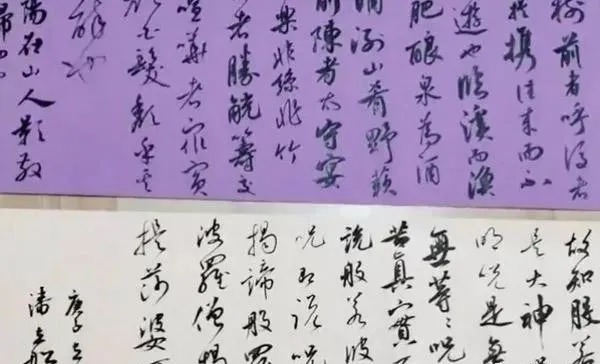 樹前者呼後者
提携往來而不
遊也臨溪而漁
肥釀泉為酒
洌山肴野蔌
前陳者太守宴
樂非絲非竹
者勝觥籌交
喧嘩者眾賓
顏白髮頹乎其
醉也
陽在山人影散
故知般若
是大神
明咒是無
無等〻咒
苦真實不
說般若波
咒即說咒
揭諦般羅
波羅僧揭
提莎婆
庚子
潘